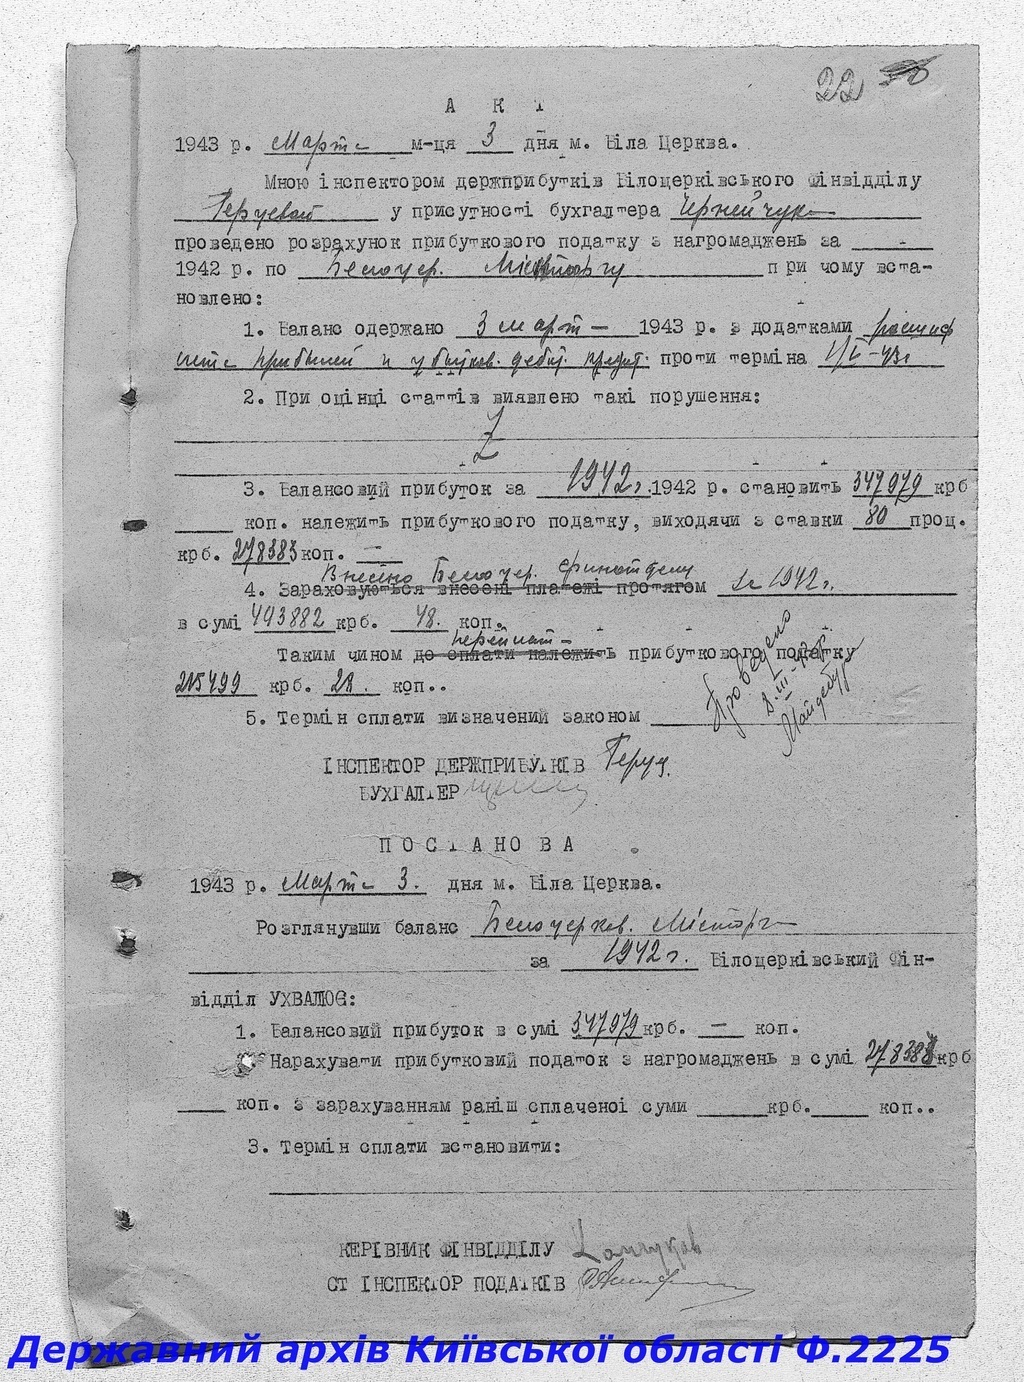 22
А К Т
1943 р. Март м-ця 3 дня м. Біла Церква.
Мною інспектором держприбутків Білоцерківського Фінвідділу
у присутності бухгалтера
проведено розрахунок прибуткового податку з нагромаджень за -
1942 р. по Белоцер. Місторгу при чому вста-
новлено:
1. Баланс одержано 3 март 1943 р. з додатками
прибылей и убытков. дебит. кредит. проти терміна
2. При оцінці статтів виявлено такі порушення:
Z
3. Балансовий прибуток за 1942 г. 1942 р. становить 347979 крб
коп. належить прибуткового податку, виходячи з ставки 80 проц.
крб. 278383 коп. —
Внесено Белоцер. финотделу
4. Зараховуються внесені платежі протягом 1942 г.
в сумі 493882 крб. 48. коп.
переплат
Таким чином до сплати належить прибуткового податку
215499 крб. 28. коп..
5. Термін сплати визначений законом
Проведено
8.III-43
ІНСПЕКТОР ДЕРЖПРИБУТКІВ
БУХГАЛТЕР
ПОСТАНОВА
1943 р. Март 3. дня м. Біла Церква.
Розглянувши баланс Белоцерков. Місторг
за 1942 г. Білоцерківський Фін-
відділ УХВАЛЮЄ:
1. Балансовий прибуток в сумі 347979 крб. — коп.
Нарахувати прибутковий податок з нагромаджень в сумі 278383 крб
коп. з зарахуванням раніш сплаченої суми крб. коп..
3. Термін сплати встановити:
КЕРІВНИК ФІНВІДДІЛУ
СТ ІНСПЕКТОР ПОДАТКІВ
Державний архів Київської області Ф.2225